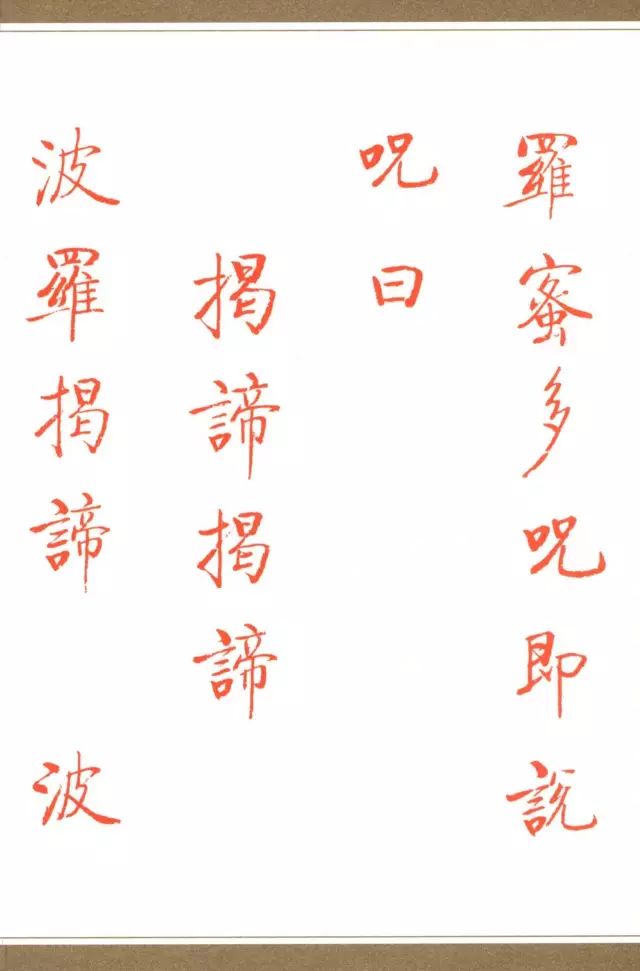 羅蜜多呪即説
呪曰
揭諦揭諦
波羅揭諦 波